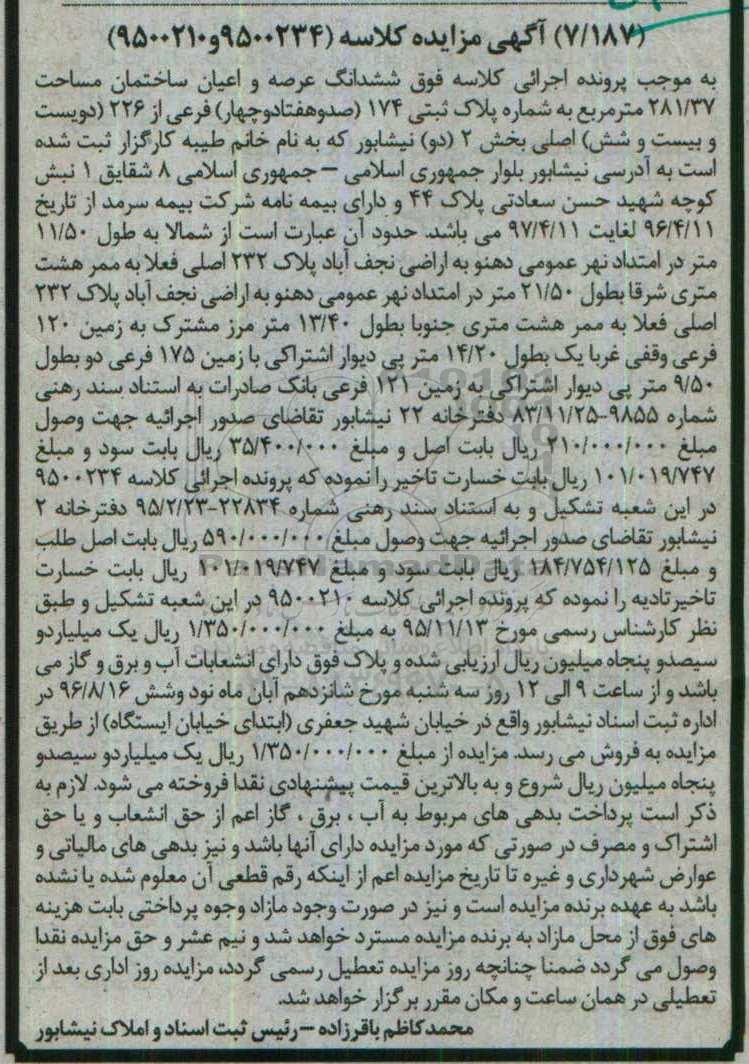 (۷/۱۸۷) آگهی مزایده کلاسه (۹۵۰۰۲۳۴و۹۵۰۰۲۱۰)
به موجب پرونده اجرائی کلاسه فوق ششدانگ عرصه و اعیان ساختمان مساحت
۲۸۱/۳۷ مترمربع به شماره پلاک ثبتی ۱۷۴ (صدوهفتادوچهار) فرعی از ۲۲۶ (دویست
و بیست و شش) اصلی بخش ۲ (دو) نیشابور که به نام خانم طیبه کارگزار ثبت شده
است به آدرسی نیشابور بلوار جمهوری اسلامی – جمهوری اسلامی ۸ شقایق ۱ نبش
کوچه شهید حسن سعادتی پلاک ۴۴ و دارای بیمه نامه شرکت بیمه سرمد از تاریخ
۹۶/۴/۱۱ لغایت ۹۷/۴/۱۱ می باشد. حدود آن عبارت است از شمالا به طول ۱۱/۵۰
متر در امتداد نهر عمومی دهنو به اراضی نجف آباد پلاک ۲۳۲ اصلی فعلا به ممر هشت
متری شرقا بطول ۲۱/۵۰ متر در امتداد نهر عمومی دهنو به اراضی نجف آباد پلاک ۲۳۲
اصلی فعلا به ممر هشت متری جنوبا بطول ۱۳/۴۰ متر مرز مشترک به زمین ۱۲۰
فرعی وقفی غربا یک بطول ۱۴/۲۰ متر پی دیوار اشتراکی با زمین ۱۷۵ فرعی دو بطول
۹/۵۰ متر پی دیوار اشتراکی به زمین ۱۲۱ فرعی بانک صادرات به استناد سند رهنی
شماره ۹۸۵۵-۸۳/۱۱/۲۵ دفترخانه ۲۲ نیشابور تقاضای صدور اجرائیه جهت وصول
مبلغ ۲۱۰/۰۰۰/۰۰۰ ریال بابت اصل و مبلغ ۳۵/۴۰۰/۰۰۰ ریال بابت سود و مبلغ
۱۰۱/۰۱۹/۷۴۷ ریال بابت خسارت تاخیر را نموده که پرونده اجرائی کلاسه ۹۵۰۰۲۳۴
در این شعبه تشکیل و به استناد سند رهنی شماره ۲۲۸۳۴-۹۵/۲/۲۳ دفترخانه ۲
نیشابور تقاضای صدور اجرائیه جهت وصول مبلغ ۵۹۰/۰۰۰/۰۰۰ ریال بابت اصل طلب
و مبلغ ۱۸۴/۷۵۴/۱۲۵ ریال بابت سود و مبلغ ۱۰۱/۰۱۹/۷۴۷ ریال بابت خسارت
تاخیرتادیه را نموده که پرونده اجرائی کلاسه ۹۵۰۰۲۱۰ در این شعبه تشکیل و طبق
نظر کارشناس رسمی مورخ ۹۵/۱۱/۱۳ به مبلغ ۱/۳۵۰/۰۰۰/۰۰۰ ریال یک میلیاردو
سیصدو پنجاه میلیون ریال ارزیابی شده و پلاک فوق دارای انشعابات آب و برق و گاز می
باشد و از ساعت ۹ الی ۱۲ روز سه شنبه مورخ شانزدهم آبان ماه نود وشش ۹۶/۸/۱۶ در
اداره ثبت اسناد نیشابور واقع در خیابان شهید جعفری (ابتدای خیابان ایستگاه) از طریق
مزایده به فروش می رسد. مزایده از مبلغ ۱/۳۵۰/۰۰۰/۰۰۰ ریال یک میلیاردو سیصدو
پنجاه میلیون ریال شروع و به بالاترین قیمت پیشنهادی نقدا فروخته می شود. لازم به
ذکر است پرداخت بدهی های مربوط به آب ، برق ، گاز اعم از حق انشعاب و یا حق
اشتراک و مصرف در صورتی که مورد مزایده دارای آنها باشد و نیز بدهی های مالیاتی و
عوارض شهرداری و غیره تا تاریخ مزایده اعم از اینکه رقم قطعی آن معلوم شده یا نشده
باشد به عهده برنده مزایده است و نیز در صورت وجود مازاد وجوه پرداختی بابت هزینه
های فوق از محل مازاد به برنده مزایده مسترد خواهد شد و نیم عشر و حق مزایده نقدا
وصول می گردد ضمنا چنانچه روز مزایده تعطیل رسمی گردد، مزایده روز اداری بعد از
تعطیلی در همان ساعت و مکان مقرر برگزار خواهد شد.
محمدکاظم باقرزاده – رئیس ثبت اسناد و املاک نیشابور